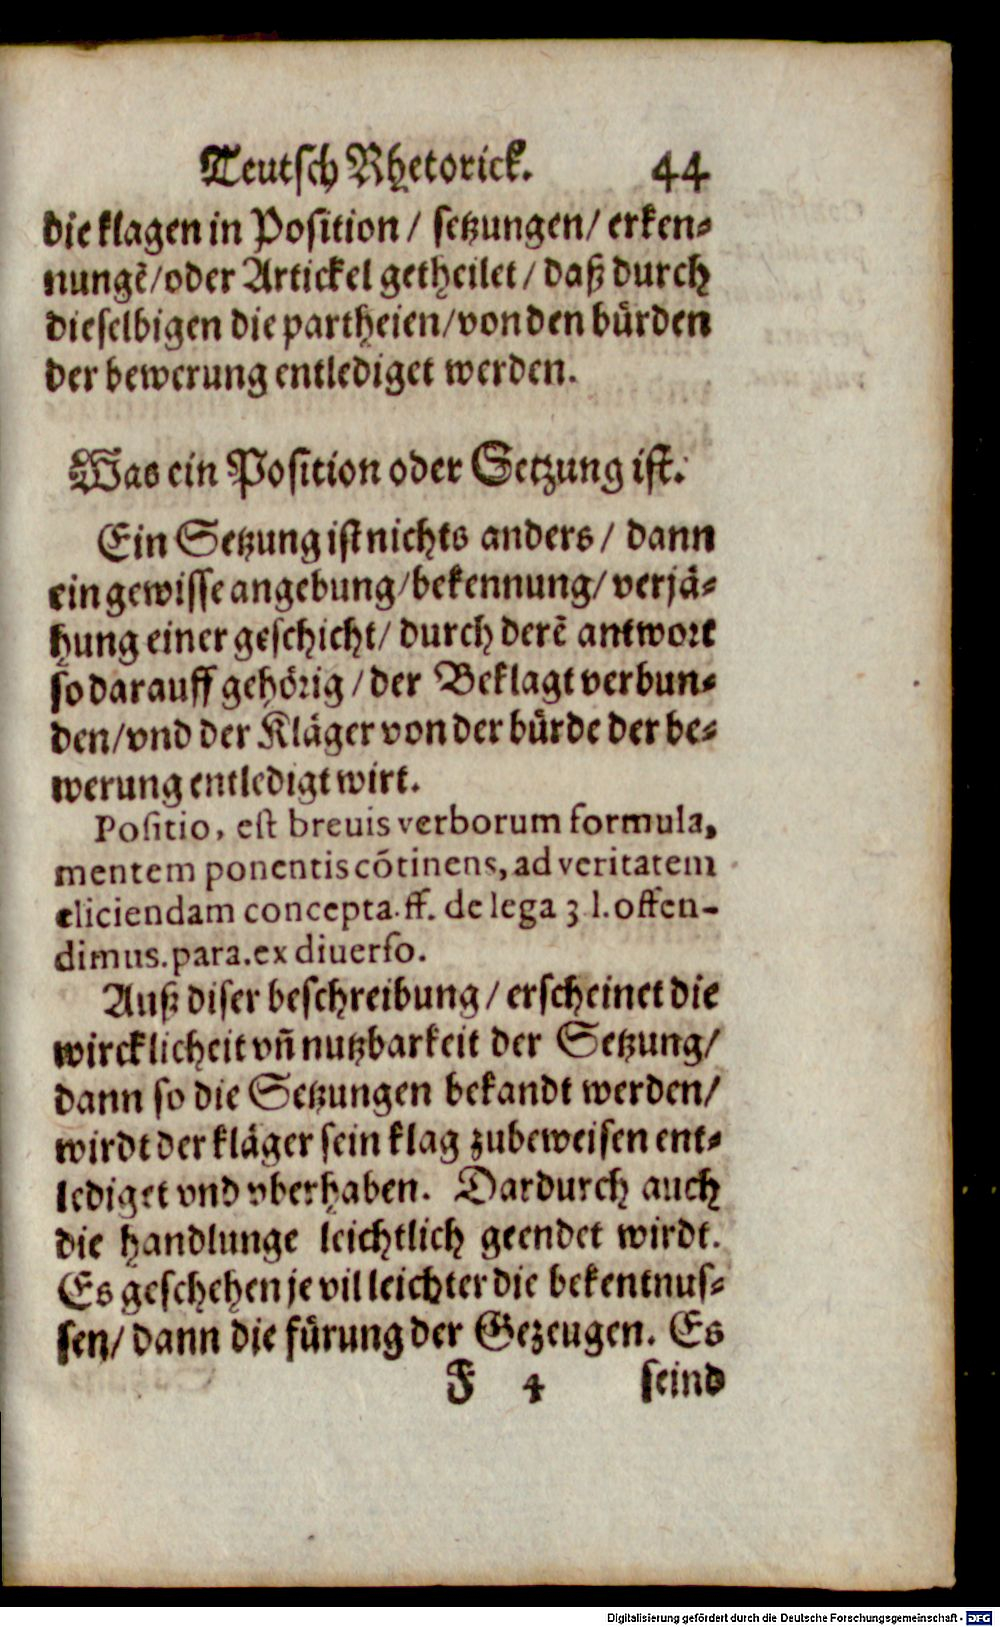 Teutsch Rhetorick. 44
die klagen in Position / setzungen / erken-
nungẽ / oder Artickel getheilet / daß durch
dieselbigen die partheien / von den bürden
der bewerung entlediget werden.
Was ein Position oder Setzung ist.
Ein Setzung ist nichts anders / dann
ein gewisse angebung / bekennung / verjä-
hung einer geschicht / durch derẽ antwort
so darauff gehörig / der Beklagt verbun-
den / vnd der Kläger von der bürde der be-
werung entledigt wirt.
Positio, est breuis verborum formula,
mentem ponentis cõtinens, ad veritatem
eliciendam concepta. ff. de lega 3 l. offen-
dimus. para. ex diuerso.
Auß diser beschreibung / erscheinet die
wircklicheit vñ nutzbarkeit der Setzung /
dann so die Setzungen bekandt werden /
wirdt der kläger sein klag zubeweisen ent-
lediget vnd vberhaben. Dardurch auch
die handlunge leichtlich geendet wirdt.
Es geschehen je vil leichter die bekentnus-
sen / dann die fürung der Gezeugen. Es
F 4 seind
Digitalisierung gefördert durch die Deutsche Forschungsgemeinschaft - DFG